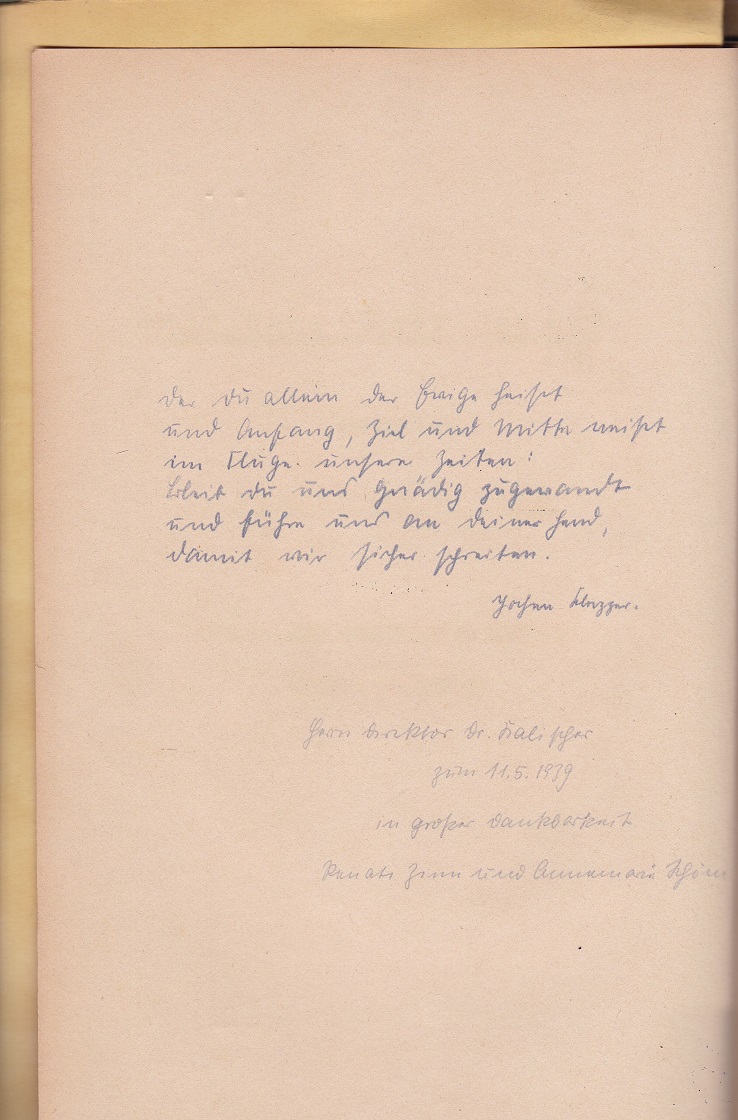 Der du allein der Ewige heißt
und Anfang, Ziel und Mitte weißt
im Fluge unsere Zeiten:
bleib du uns gnädig zugewandt
und führe uns an deiner Hand,
damit wir sicher schreiten.
Jochen Klepper.
Herrn Direktor Dr. Kalischer
zum 11.5.1939
in großer Dankbarkeit
Renate Zinn und Annemarie